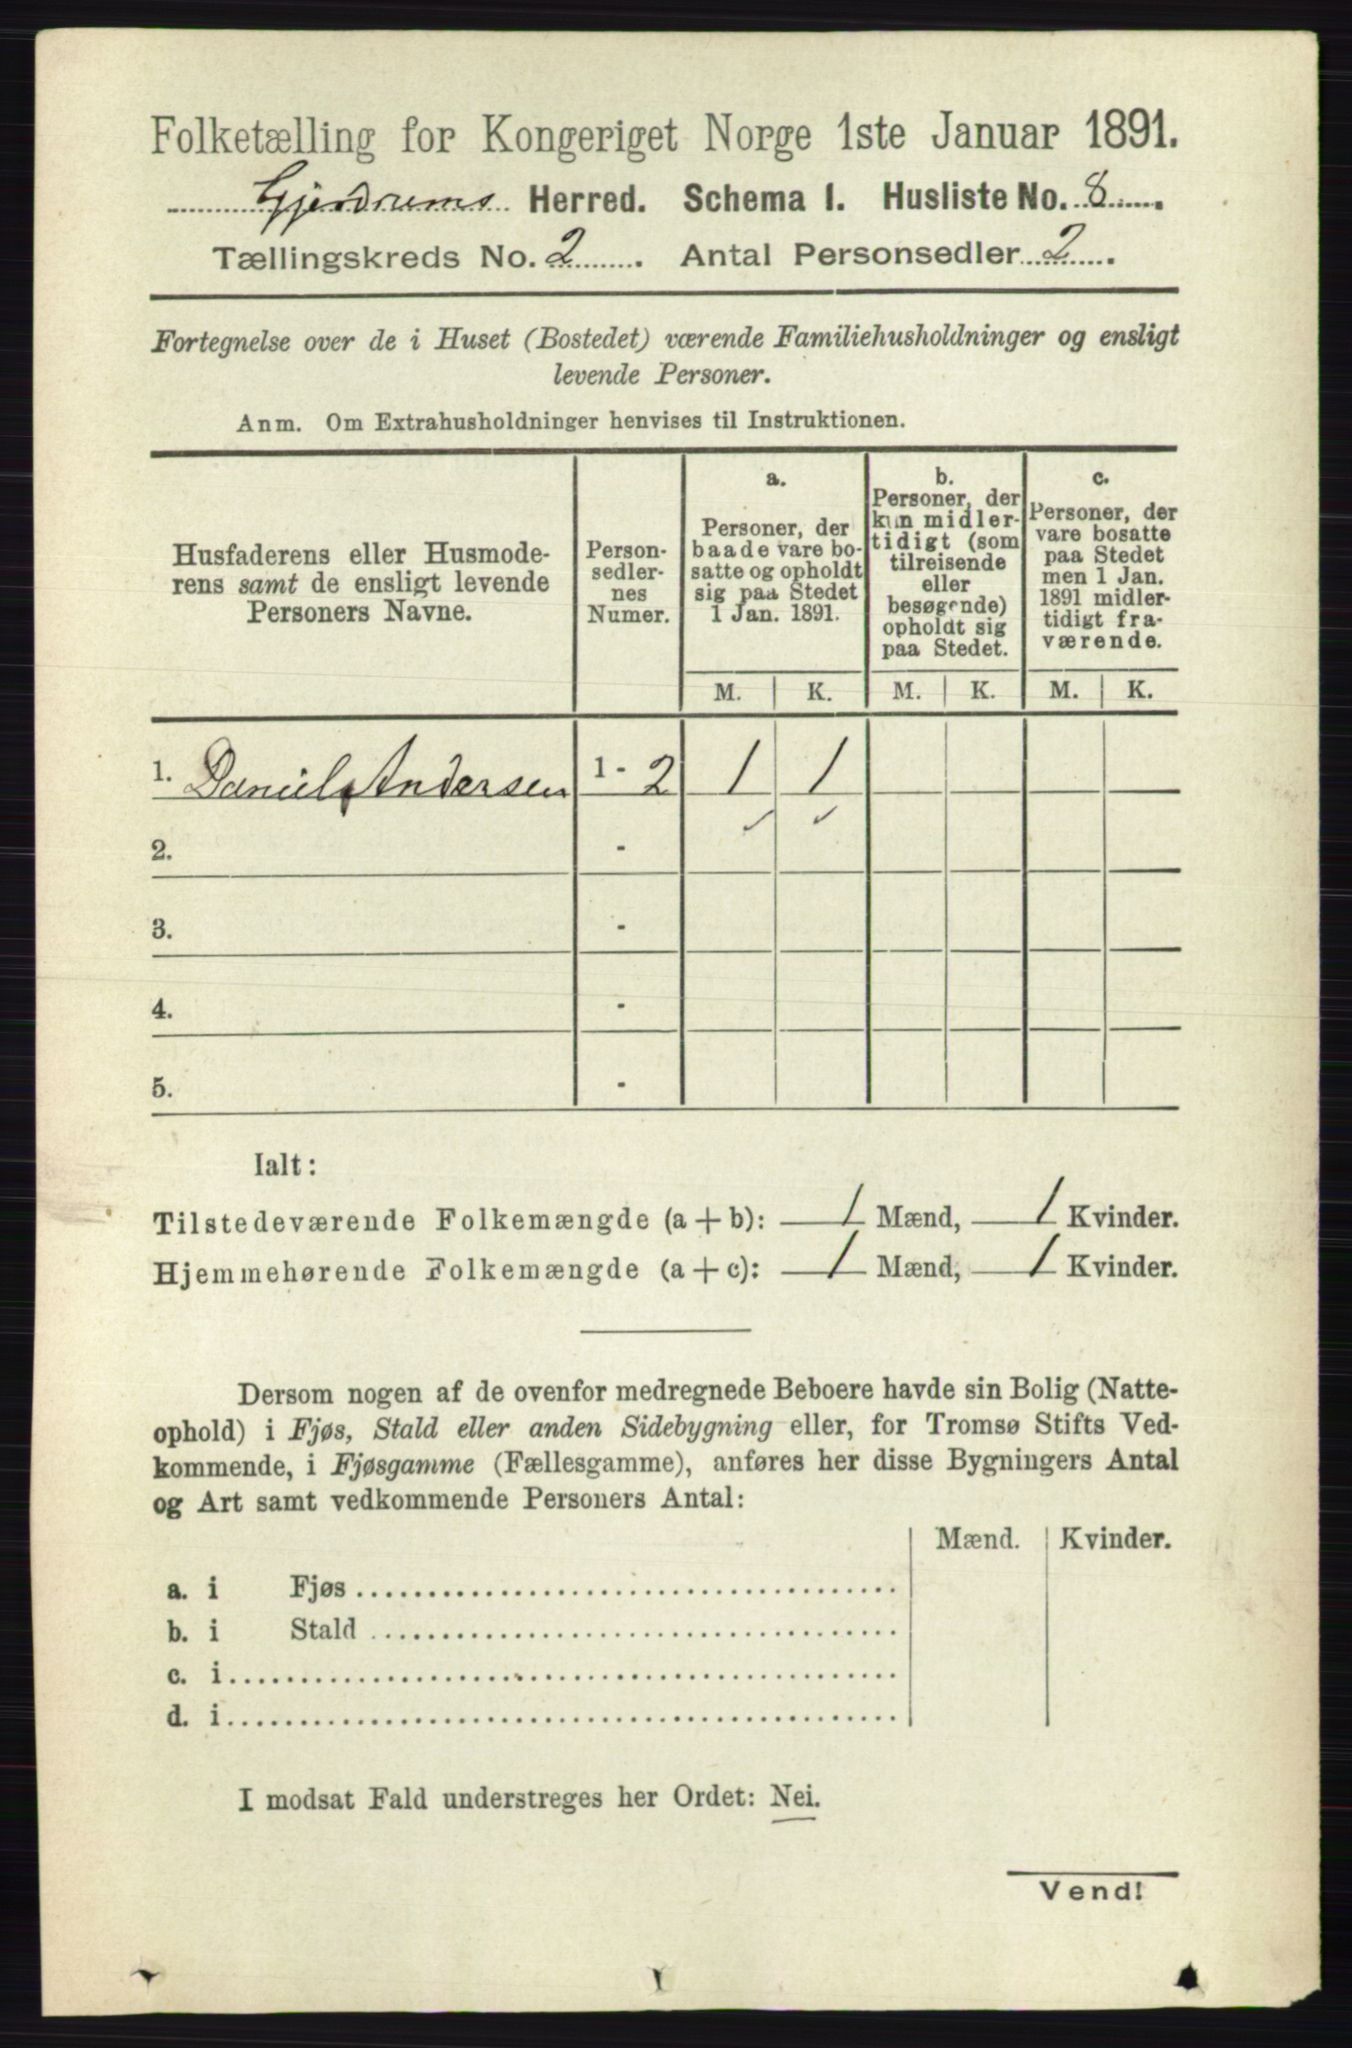 Folketælling for Kongeriget Norge 1ste Januar 1891.
Gjerdrums Herred. Schema I. Husliste No. 8.
Tællingskreds No. 2. Antal Personsedler 2.
Fortegnelse over de i Huset (Bostedet) værende Familiehusholdninger og ensligt
levende Personer.
Anm. Om Extrahusholdninger henvises til Instruktionen.
Husfaderens eller Husmode-
rens samt de ensligt levende
Personers Navne.
Person-
sedler-
nes
Numer.
a.
Personer, der
baade vare bo-
satte og opholdt
sig paa Stedet
1 Jan. 1891.
b.
Personer, der
kun midler-
tidigt (som
tilreisende
eller
besøgende)
opholdt sig
paa Stedet.
c.
Personer, der
vare bosatte
paa Stedet
men 1 Jan.
1891 midler-
tidigt fra-
værende.
M. K. M. K. M. K.
1. Daniel Andersen 1 - 2 1 1
2. -
3. -
4. -
5. -
Ialt:
Tilstedeværende Folkemængde (a + b): 1 Mænd, 1 Kvinder.
Hjemmehørende Folkemængde (a + c): 1 Mænd, 1 Kvinder.
Dersom nogen af de ovenfor medregnede Beboere havde sin Bolig (Natte-
ophold) i Fjøs, Stald eller anden Sidebygning eller, for Tromsø Stifts Ved-
kommende, i Fjøsgamme (Fællesgamme), anføres her disse Bygningers Antal
og Art samt vedkommende Personers Antal:
Mænd. Kvinder.
a. i Fjøs
b. i Stald
c. i
d. i
I modsat Fald understreges her Ordet: Nei.
Vend!